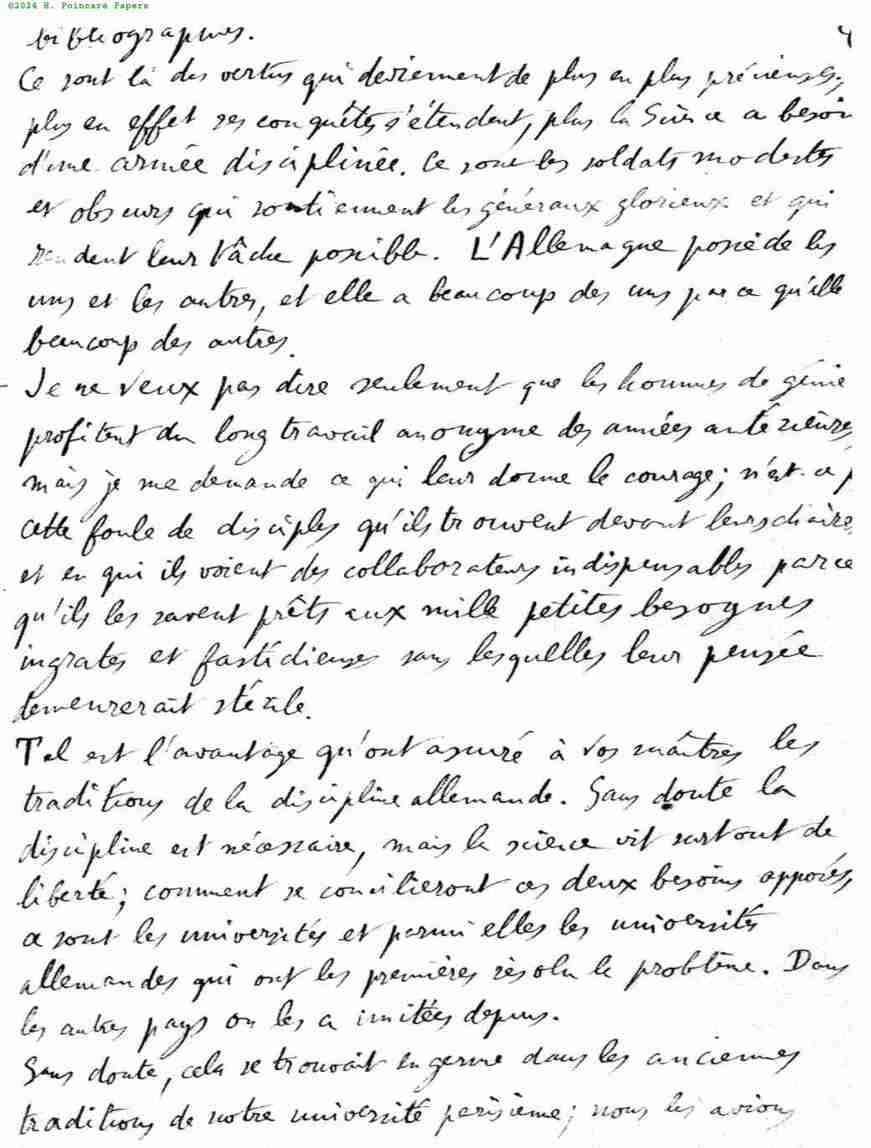 ©2024 H. Poincaré Papers
4
bibliographes.
Ce sont là des vertus qui deviennent de plus en plus précieuses,
plus en effet ses conquêtes s'étendent, plus la Science a besoin
d'une armée disciplinée. Ce sont les soldats modestes
et obscurs qui soutiennent les généraux glorieux et qui
rendent leur tâche possible. L'Allemagne possède les
uns et les autres, et elle a beaucoup des uns parce qu'elle
beaucoup des autres.
Je ne veux pas dire seulement que les hommes de génie
profitent du long travail anonyme des années antérieures,
mais je me demande ce qui leur donne le courage; n'est-ce p
cette foule de disciples qu'ils trouvent devant leurs chaires
et en qui ils voient des collaborateurs indispensables parce
qu'ils les savent prêts aux mille petites besognes
ingrates et fastidieuses sans lesquelles leur pensée
demeurerait stérile.
Tel est l'avantage qu'ont assuré à vos maîtres les
traditions de la discipline allemande. Sans doute la
discipline est nécessaire, mais la science vit surtout de
liberté; comment se concilieront ces deux besoins opposés,
ce sont les universités et parmi elles les universités
allemandes qui ont les premières résolu le problème. Dans
les autres pays on les a imitées depuis.
Sans doute, cela se trouvait en germe dans les anciennes
traditions de notre université parisienne; nous les avions